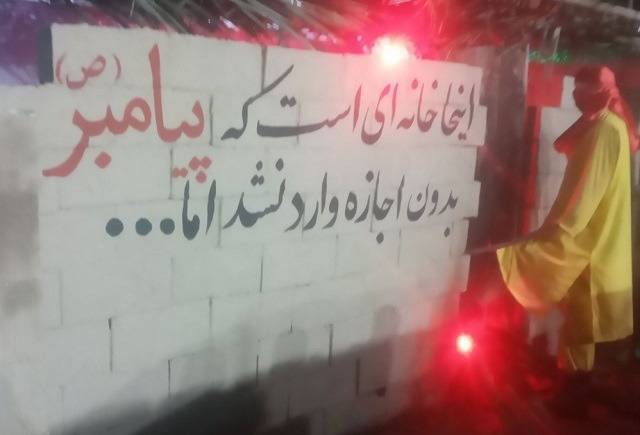 اینجا خانه ای است که پیامبر (ص)
بدون اجازه وارد نشد اما...